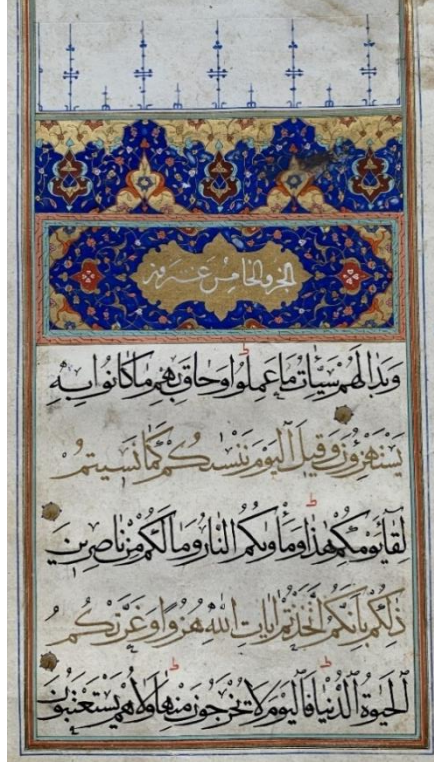 الجزو الخامس
وَبَدَا لَهُمْ سَيِّاٰتُ مَا عَمِلُوا وَحَاقَ بِهِمْ مَا كَانُوا بِهِ
يَسْتَهْزِؤُنَ وَقِيلَ الْيَوْمَ نَنْسٰىكُمْ كَمَا نَسِيتُمْ
لِقَاءَ يَوْمِكُمْ هٰذَا وَمَأْوٰىكُمُ النَّارُ وَمَا لَكُمْ مِنْ نَاصِرِينَ
ذٰلِكُمْ بِأَنَّكُمُ اتَّخَذْتُمْ اٰيَاتِ اللهِ هُزُوًا وَغَرَّتْكُمُ
الْحَيٰوةُ الدُّنْيَا فَالْيَوْمَ لَا يُخْرَجُونَ مِنْهَا وَلَا هُمْ يُسْتَعْتَبُونَ